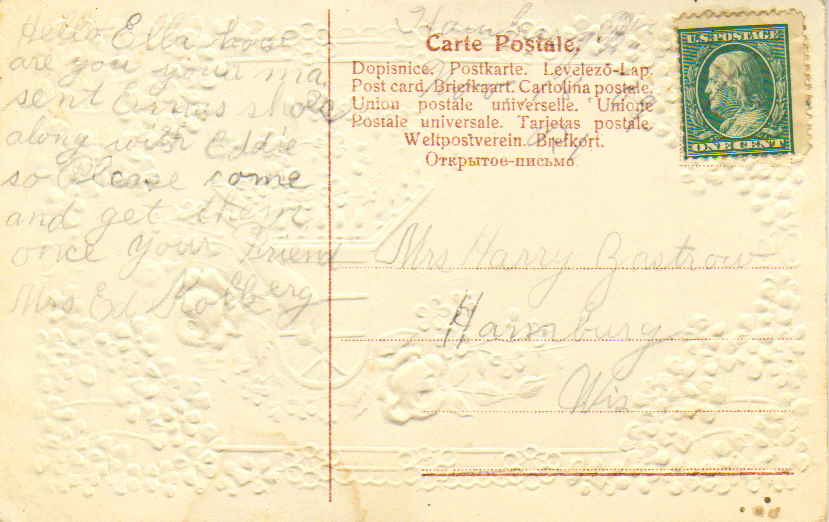 Hello Ella how
are you your ma
sent Ernas shoe
along with Eddie
so Please come
and get them
once your Friend
Mrs Ed Kolberg
Carte Postale.
Dopisnice. Postkarte. Levelező-Lap.
Post card. Briefkaart. Cartolina postale.
Union postale universelle. Unione
Postale universale. Tarjetas postale.
Weltpostverein. Brefkort.
Открытое-письмо
U.S. POSTAGE
ONE CENT
Mrs Harry Zastrow
Hamburg
Wis